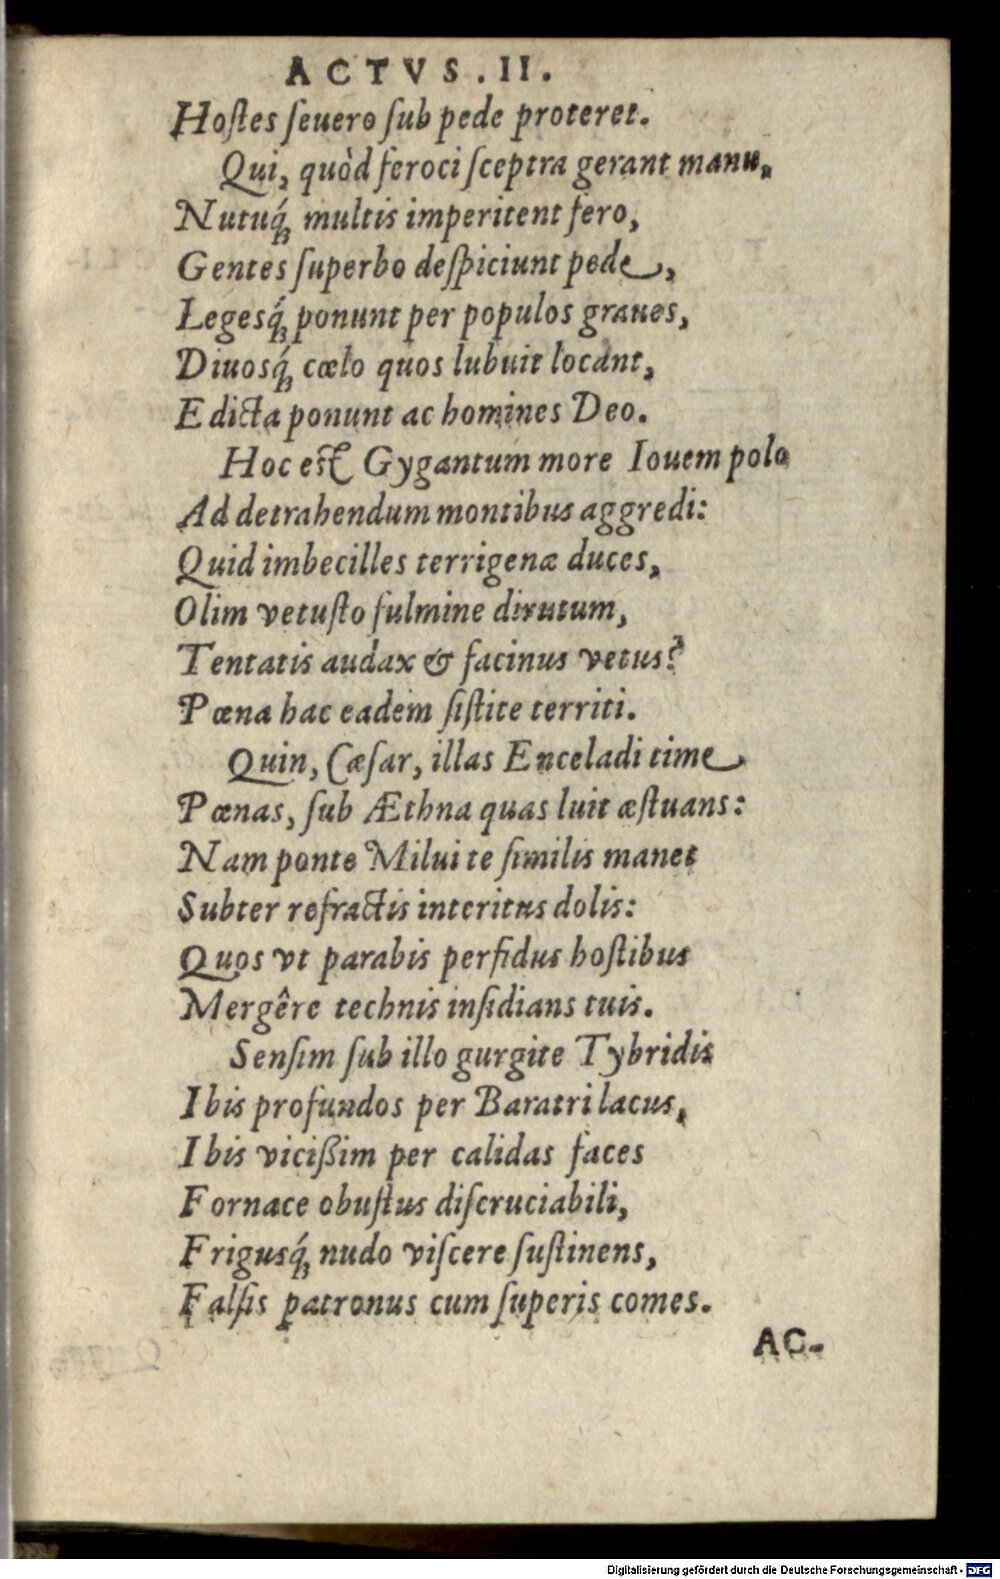 ACTVS. II.
Hoſtes ſeuero ſub pede proteret.
Qui, quòd feroci ſceptra gerant manu,
Nutuq́; multis imperitent fero,
Gentes ſuperbo deſpiciunt pede,
Legesq́; ponunt per populos graues,
Diuosq́; cœlo quos lubuit locant,
Edicta ponunt ac homines Deo.
Hoc eſt Gygantum more Iouem polo
Ad detrahendum montibus aggredi:
Quid imbecilles terrigenæ duces,
Olim vetuſto fulmine dirutum,
Tentatis audax & facinus vetus?
Pœna hac eadem ſiſtite territi.
Quin, Cæſar, illas Enceladi time
Pœnas, ſub Æthna quas luit æſtuans:
Nam ponte Milui te ſimilis manet
Subter refractis interitus dolis:
Quos vt parabis perfidus hoſtibus
Mergêre technis inſidians tuis.
Senſim ſub illo gurgite Tybridis
Ibis profundos per Baratri lacus,
Ibis vicißim per calidas faces
Fornace obuſtus diſcruciabili,
Frigusq́; nudo viſcere ſuſtinens,
Falſis patronus cum ſuperis comes.
AC-
Digitalisierung gefördert durch die Deutsche Forschungsgemeinschaft - DFG